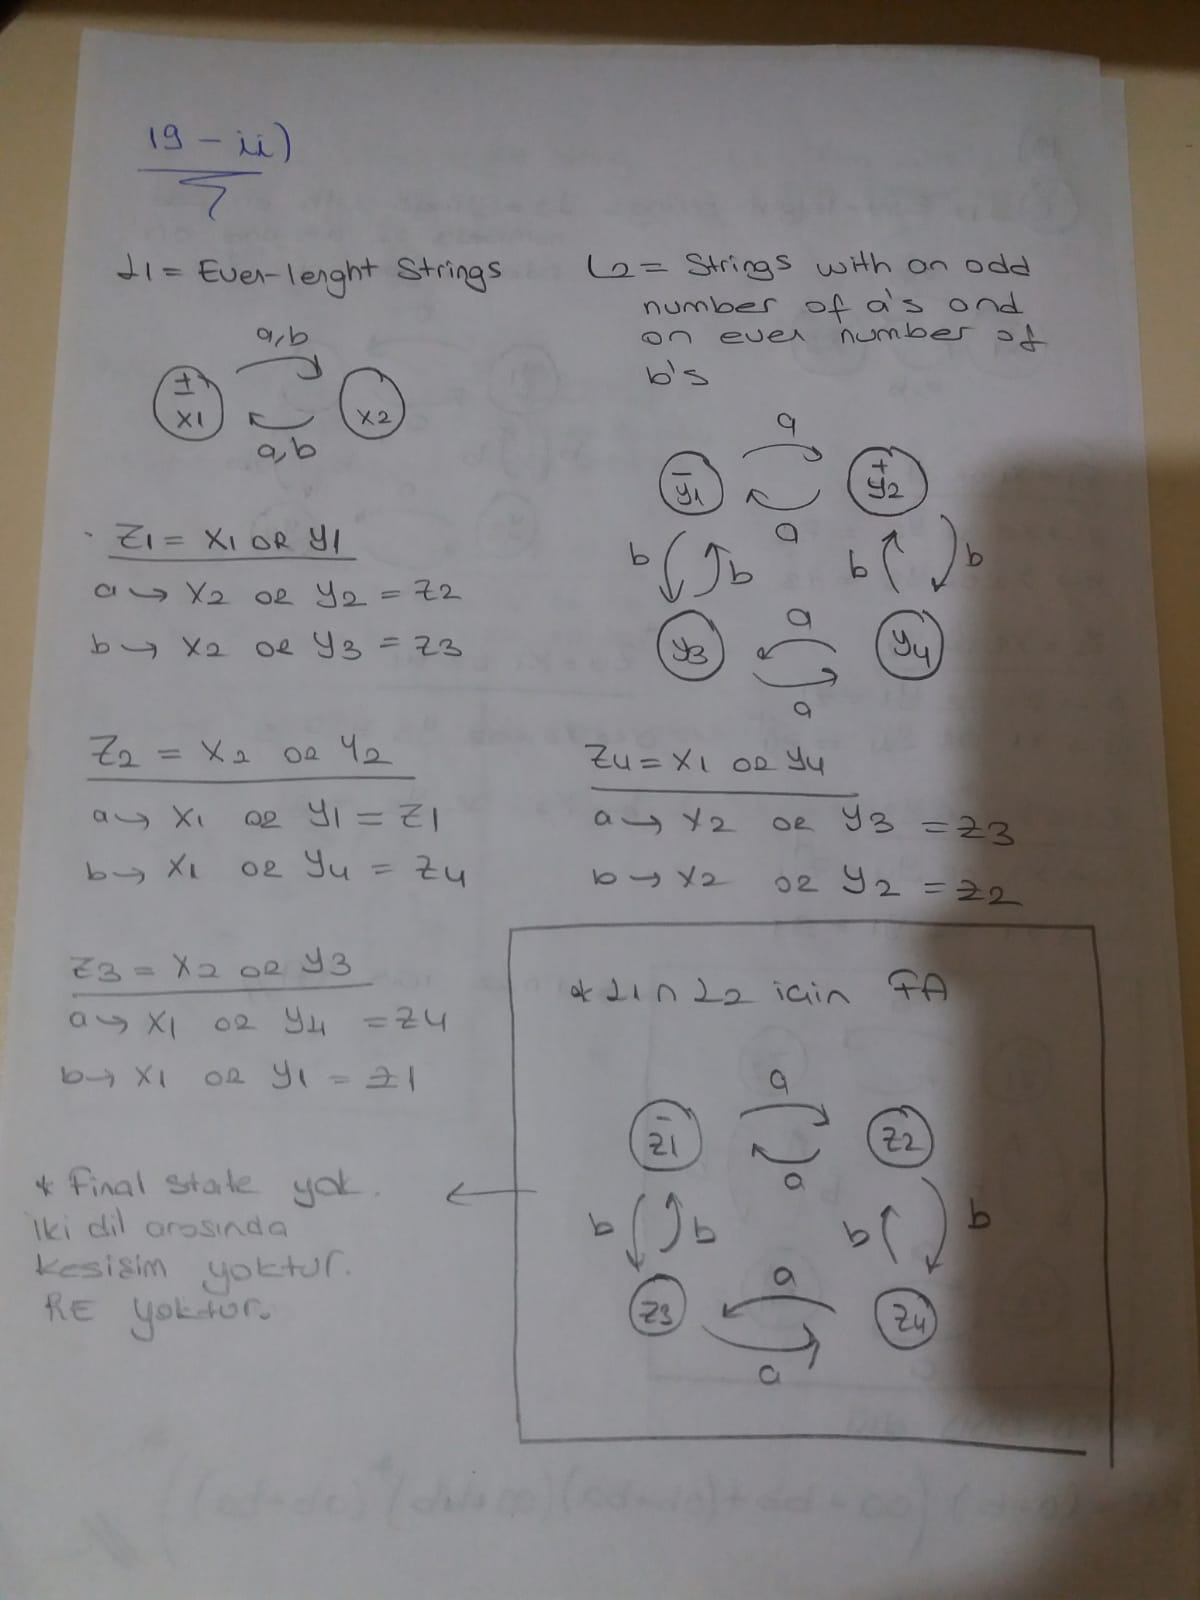 19 - ii)
L1 = Even-lenght Strings
a,b
±
x1
x2
a,b
L2 = Strings with an odd
number of a's and
an even number of
b's
a
-
y1
+
y2
a
b
b
b
b
a
y3
y4
a
Z1 = X1 OR Y1
a → X2 or Y2 = Z2
b → X2 or Y3 = Z3
Z2 = X2 or Y2
a → X1 or Y1 = Z1
b → X1 or Y4 = Z4
Z4 = X1 or Y4
a → X2 or Y3 = Z3
b → X2 or Y2 = Z2
Z3 = X2 or Y3
a → X1 or Y4 = Z4
b → X1 or Y1 = Z1
* L1 ∩ L2 için FA
a
-
Z1
Z2
a
b
b
b
b
a
Z3
Z4
a
* Final state yok.
iki dil arasında
kesişim yoktur.
RE yoktur.